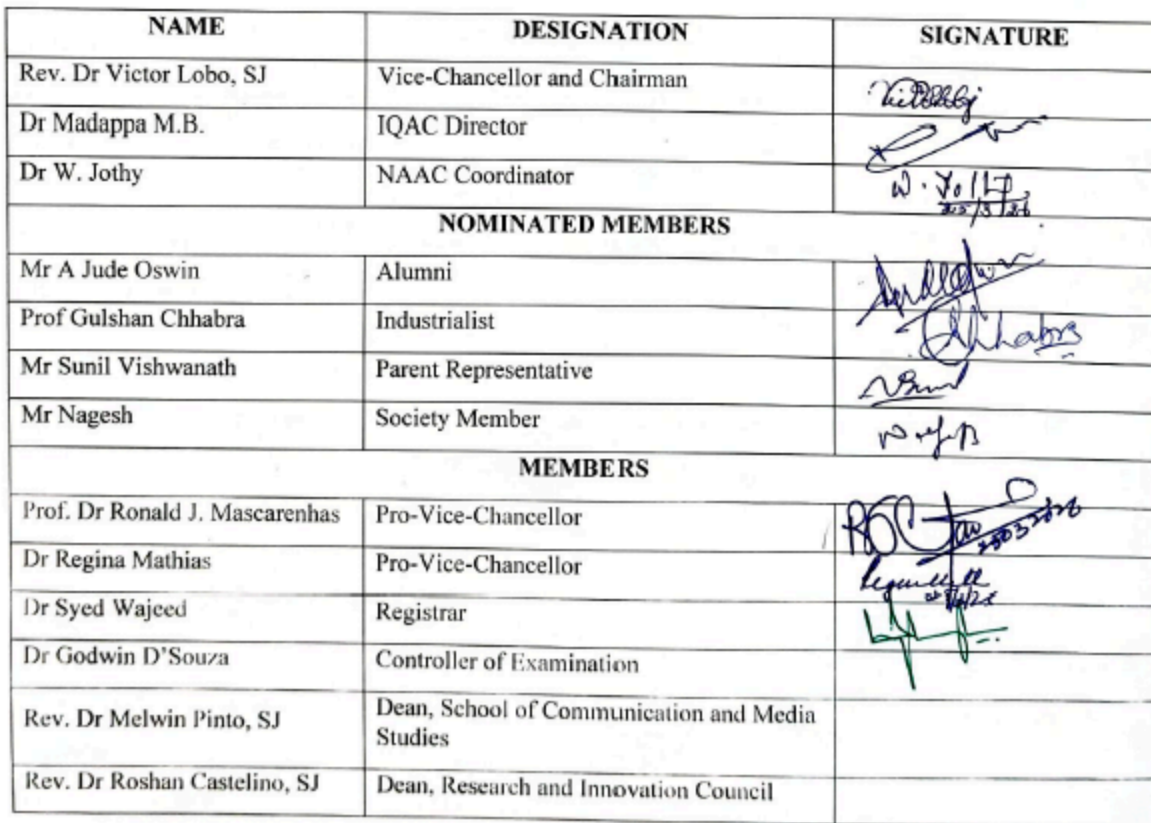 NAME DESIGNATION SIGNATURE
Rev. Dr Victor Lobo, SJ Vice-Chancellor and Chairman
Dr Madappa M.B. IQAC Director
Dr W. Jothy NAAC Coordinator W. Jothy
NOMINATED MEMBERS
Mr A Jude Oswin Alumni
Prof Gulshan Chhabra Industrialist Chhabra
Mr Sunil Vishwanath Parent Representative
Mr Nagesh Society Member
MEMBERS
Prof. Dr Ronald J. Mascarenhas Pro-Vice-Chancellor
Dr Regina Mathias Pro-Vice-Chancellor
Dr Syed Wajeed Registrar
Dr Godwin D'Souza Controller of Examination
Rev. Dr Melwin Pinto, SJ Dean, School of Communication and Media
Studies
Rev. Dr Roshan Castelino, SJ Dean, Research and Innovation Council